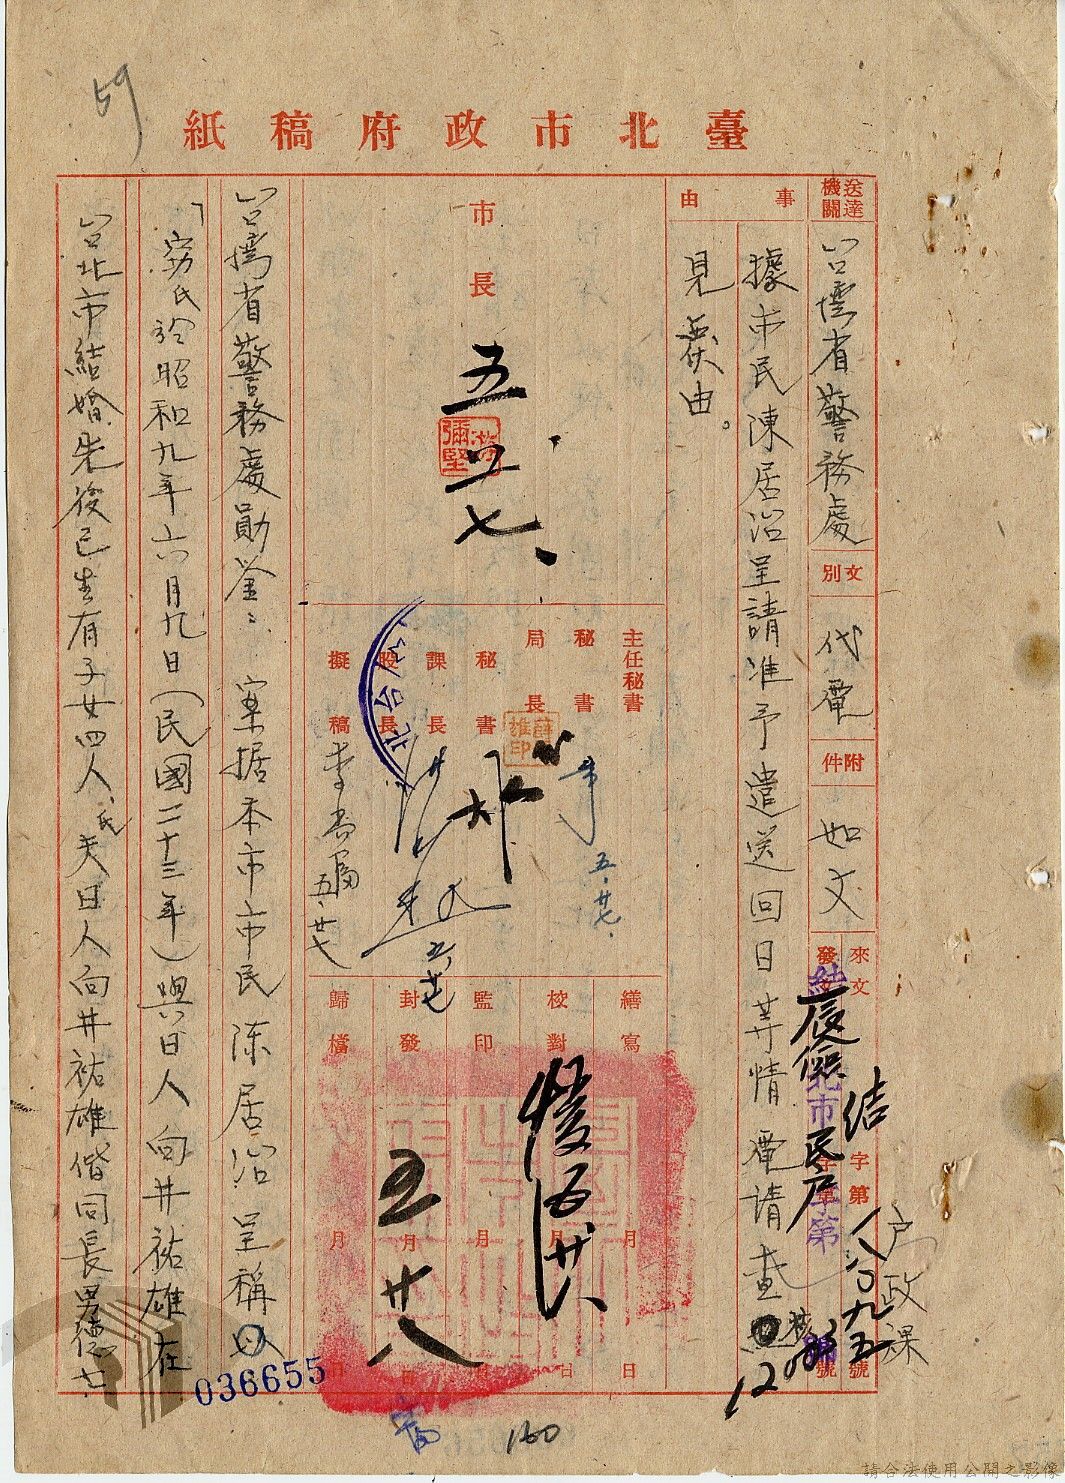 59
臺北市政府稿紙
送達機關
台灣省警務處
文別
代電
附件
如文
來文
結 字第
八六〇九五
號
發文
辰 民戶
字第
號
戶政課
事由
據市民陳居治呈請准予遣送回日等情電請查核
見復由。
市長
五
游彌堅
廿七、
主任秘書
秘書
局長
秘書
課長
股長
擬稿
五、廿七、
五、廿七
五、廿七
繕寫 月 日
校對 月 日
五廿八
監印 月 日
封發 月 日
五廿八
歸檔 月 日
台灣省警務處勛鑒：案据本市市民陳居治呈稱以
「窃氏於昭和九年六月九日（民國二十三年）與日人向井祐雄在
台北市結婚先後已生有子女四人、氏夫日人向井祐雄偕同長男德七
036655
160
請合法使用公開之影像